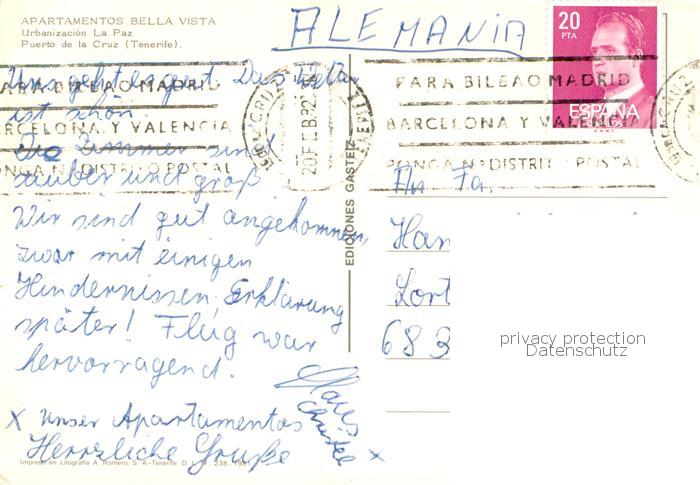 APARTAMENTOS BELLA VISTA
Urbanización La Paz
Puerto de la Cruz (Tenerife).
ALEMANIA
20
PTA
ESPAÑA
CORREOS
PARA BILBAO MADRID
BARCELONA Y VALENCIA
PONGA Nº DISTRITO POSTAL
20 FEB 82
PARA BILBAO MADRID
BARCELONA Y VALENCIA
PONGA Nº DISTRITO POSTAL
Uns geht es gut. Das Wetter
ist schön.
Die Zimmer sind
sauber und groß
Wir sind gut angekommen,
zwar mit einigen
Hindernissen, Erklärung
später! Flug war
hervorragend.
x Unser Apartamentos
Herrzliche Grüße
Christel x
EDICIONES GASTEIZ
An Fa.
Han
Lort
683
privacy protection
Datenschutz
Impreso en Litografía A. Romero, S. A.-Tenerife D. L. TF. 238 - 1981